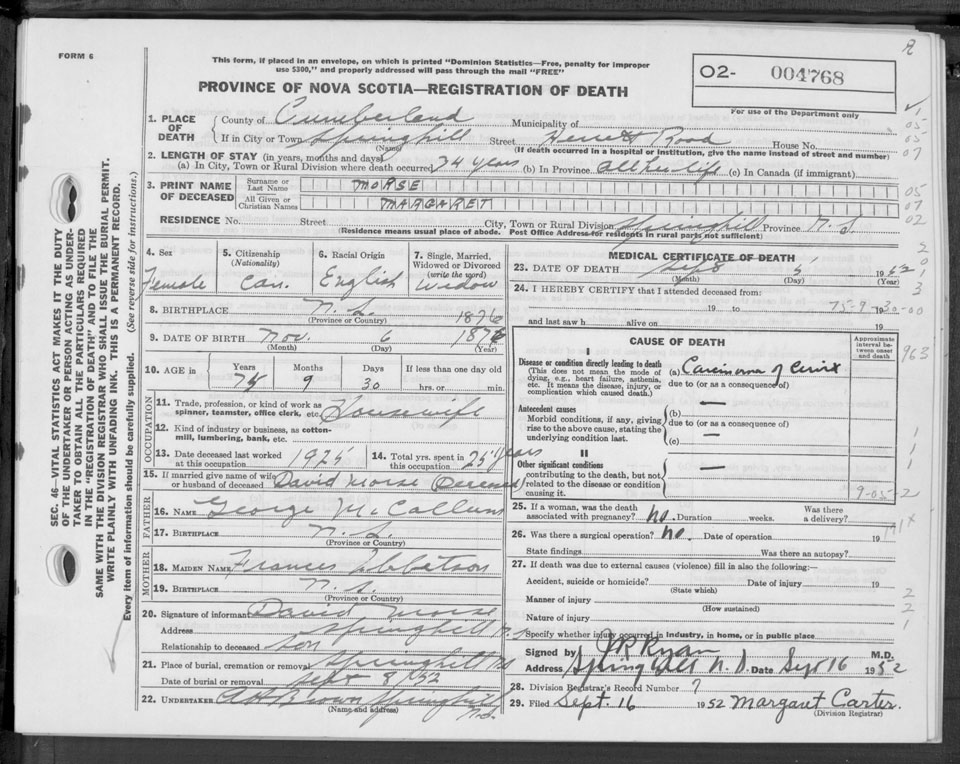 FORM 6
This form, if placed in an envelope, on which is printed "Dominion Statistics—Free, penalty for improper
use $300," and properly addressed will pass through the mail "FREE"
PROVINCE OF NOVA SCOTIA—REGISTRATION OF DEATH
O2- 004768
For use of the Department only
SEC. 46—VITAL STATISTICS ACT MAKES IT THE DUTY
OF THE UNDERTAKER OR PERSON ACTING AS UNDER-
TAKER TO OBTAIN ALL THE PARTICULARS REQUIRED
IN THE "REGISTRATION OF DEATH" AND TO FILE THE
SAME WITH THE DIVISION REGISTRAR WHO SHALL ISSUE THE BURIAL PERMIT.
WRITE PLAINLY WITH UNFADING INK. THIS IS A PERMANENT RECORD.
Every item of information should be carefully supplied. (See reverse side for instructions.)
1. PLACE OF DEATH County of Cumberland Municipality of
If in City or Town Springhill Street Road House No.
(Name) (If death occurred in a hospital or institution, give the name instead of street and number)
2. LENGTH OF STAY (in years, months and days)
(a) In City, Town or Rural Division where death occurred 74 years (b) In Province all her life (c) In Canada (if immigrant)
3. PRINT NAME OF DECEASED Surname or Last Name MORSE
All Given or Christian Names MARGARET
RESIDENCE No. Street City, Town or Rural Division Springhill Province N.S.
(Residence means usual place of abode. Post Office Address for residents in rural parts not sufficient)
4. Sex Female
5. Citizenship (Nationality) Can.
6. Racial Origin English
7. Single, Married, Widowed or Divorced (write the word) Widow
8. BIRTHPLACE N.S.
(Province or Country)
1876
9. DATE OF BIRTH Nov. 6 187
(Month) (Day) (Year)
10. AGE in Years Months Days If less than one day old
9 30 hrs. or min.
OCCUPATION
11. Trade, profession, or kind of work as spinner, teamster, office clerk, etc. Housewife
12. Kind of industry or business, as cotton-mill, lumbering, bank, etc.
13. Date deceased last worked at this occupation 1925
14. Total yrs. spent in this occupation 25 years
15. If married give name of wife or husband of deceased David Morse (Deceased)
FATHER
16. NAME George McCallum
17. BIRTHPLACE N.S.
(Province or Country)
MOTHER
18. MAIDEN NAME Frances Ibbetson
19. BIRTHPLACE N.S.
(Province or Country)
20. Signature of informant David Morse
Address Springhill N.S.
Relationship to deceased son
21. Place of burial, cremation or removal Springhill NS
Date of burial or removal Sept 8/52
22. UNDERTAKER A H Brown Springhill N.S.
(Name and address)
MEDICAL CERTIFICATE OF DEATH
23. DATE OF DEATH Sept 5 1952
(Month) (Day)
24. I HEREBY CERTIFY that I attended deceased from:
19 to 19
and last saw h alive on 19
CAUSE OF DEATH
Approximate interval between onset and death
I
Disease or condition directly leading to death
(This does not mean the mode of dying, e.g., heart failure, asthenia, etc. It means the disease, injury, or complication which caused death.)
(a) Carcinoma of Cervix
due to (or as a consequence of)
Antecedent causes
Morbid conditions, if any, giving rise to the above cause, stating the underlying condition last.
(b) —
due to (or as a consequence of)
(c) —
II
Other significant conditions
contributing to the death, but not related to the disease or condition causing it.
—
25. If a woman, was the death associated with pregnancy? no. Duration weeks. Was there a delivery?
26. Was there a surgical operation? no. Date of operation 19
State findings Was there an autopsy?
27. If death was due to external causes (violence) fill in also the following:—
Accident, suicide or homicide? Date of injury 19
(State which)
Manner of injury
(How sustained)
Nature of injury
Specify whether injury occurred in industry, in home, or in public place
Signed by J R Ryan M.D.
Address Springhill N.S. Date Sept 16 1952
28. Division Registrar's Record Number 7
29. Filed Sept. 16 1952 Margaret Carter.
(Division Registrar)